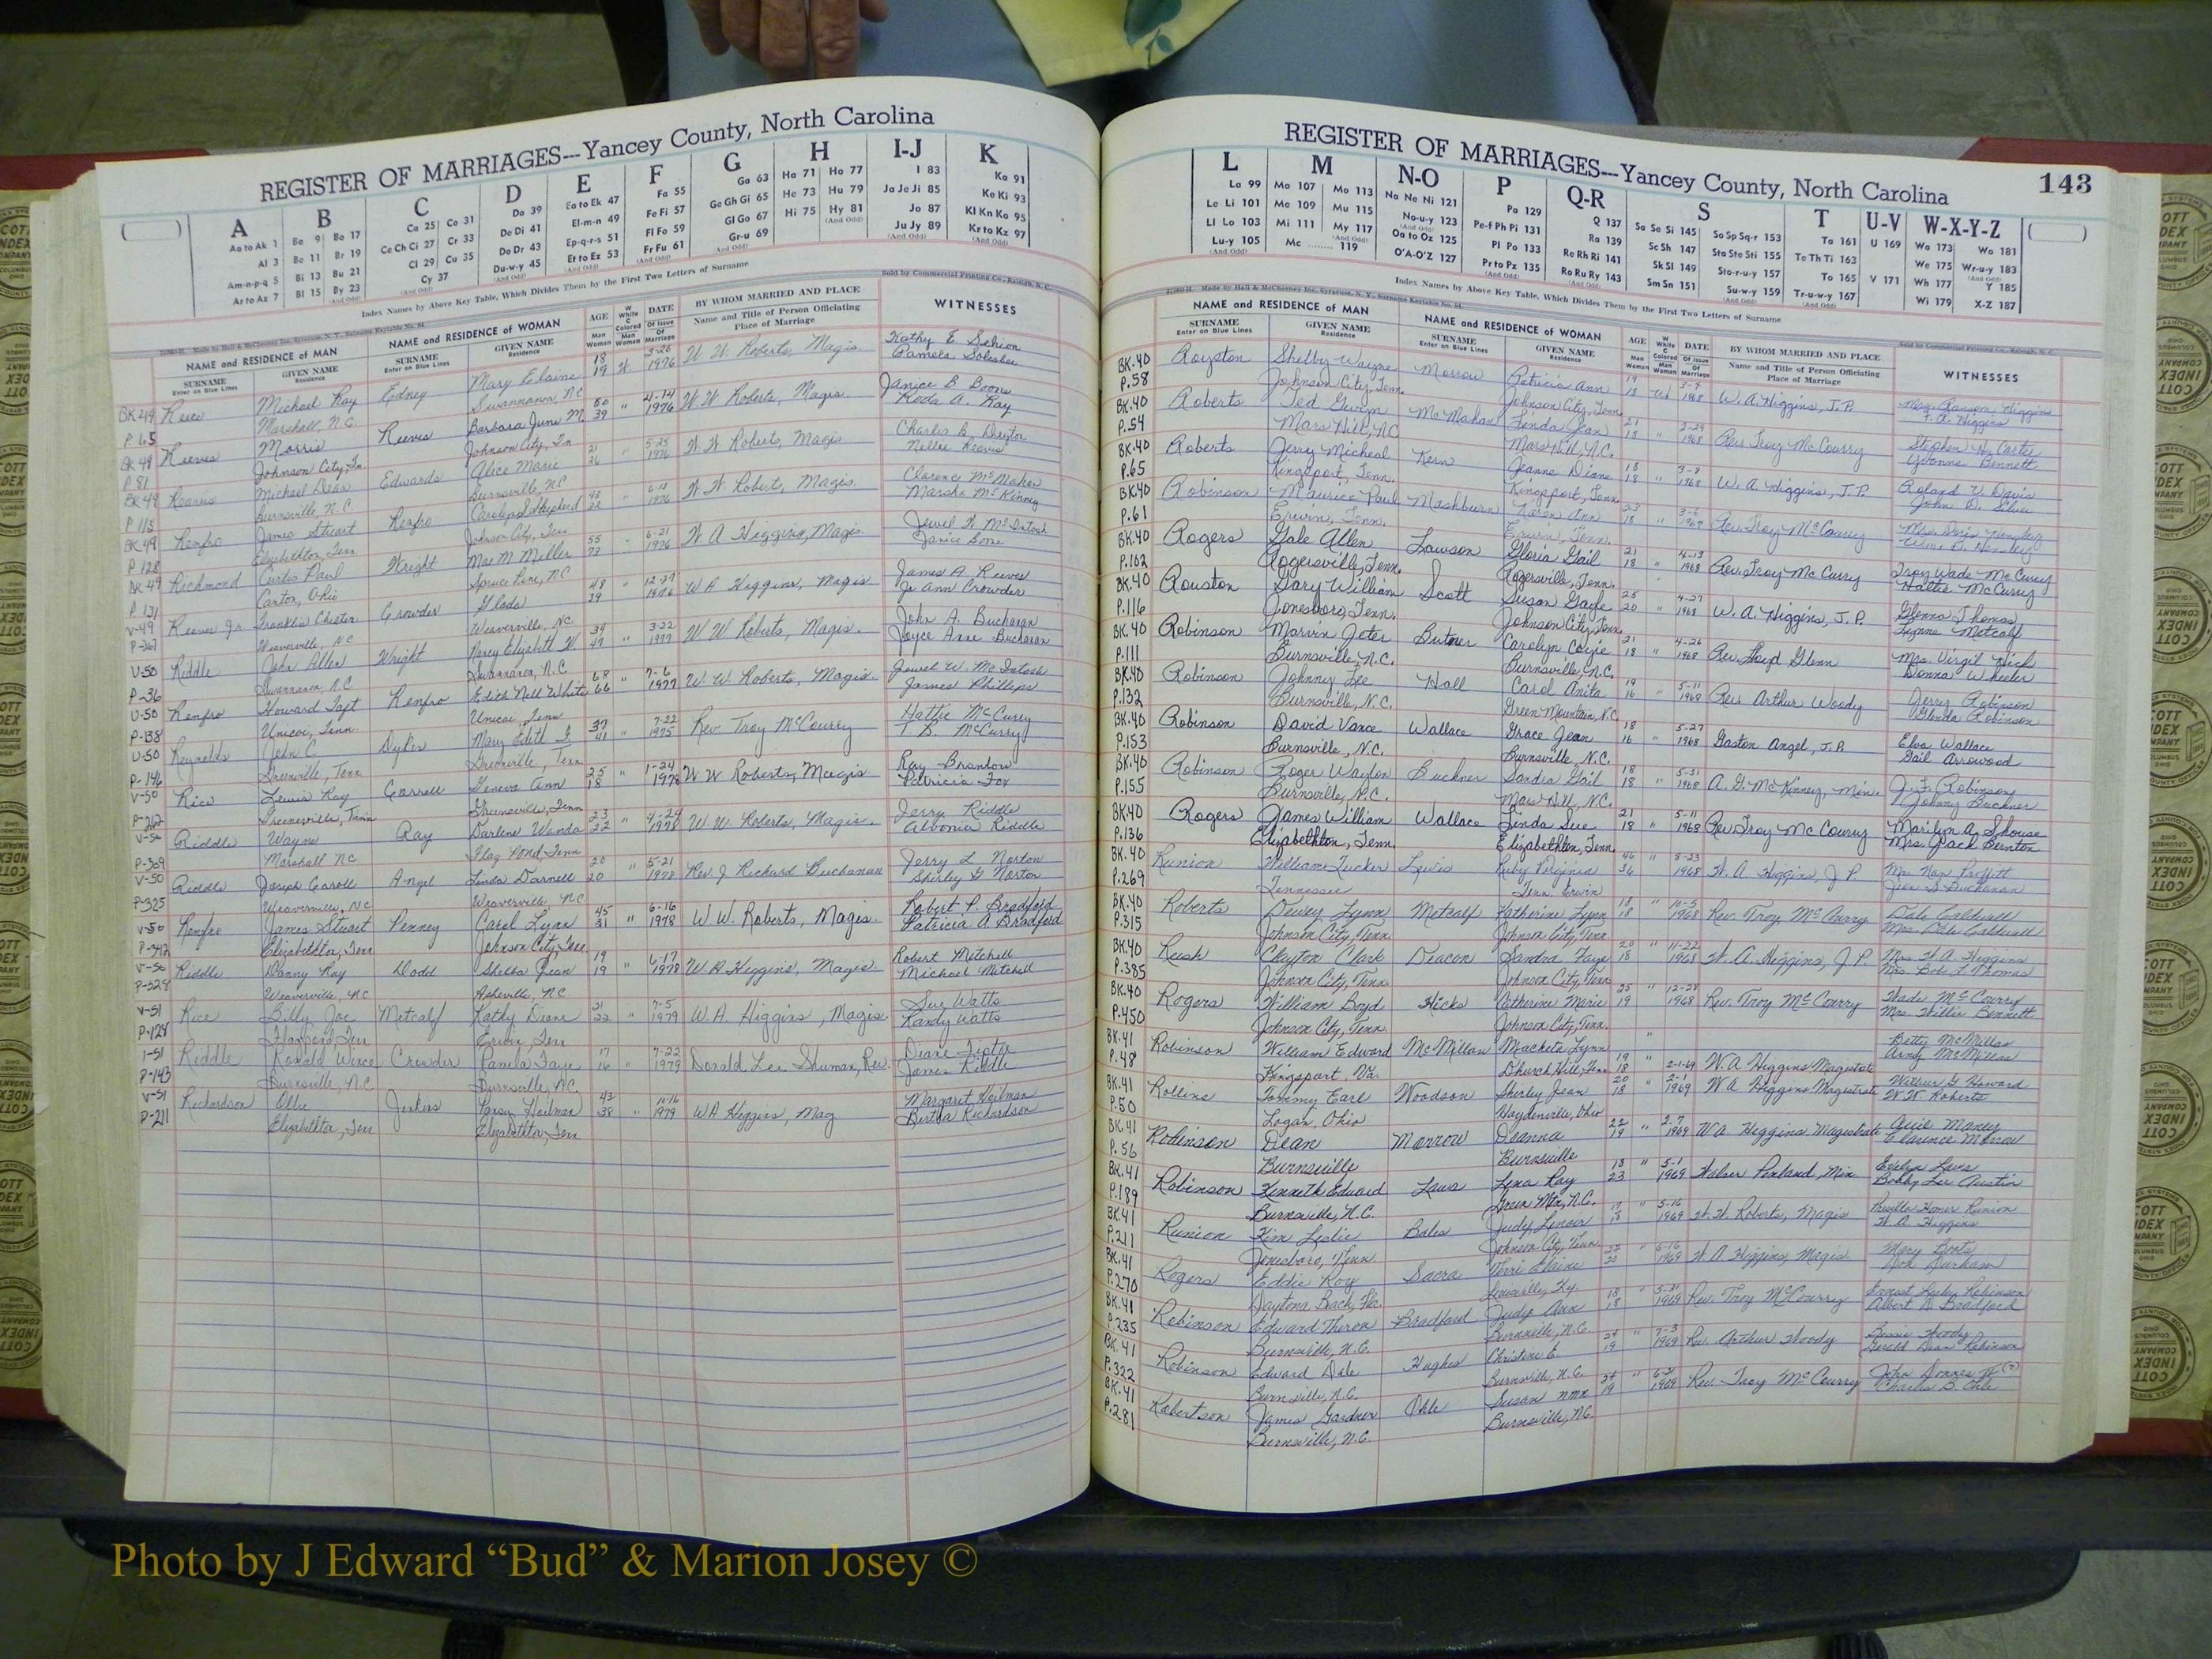 REGISTER OF MARRIAGES---Yancey County, North Carolina
A B C D E F G H I-J K
Aa to Ak 1 Ba 9 Bo 17 Ca 25 Co 31 Da 39 Ea to Ek 47 Fa 55 Ga 63 Ha 71 Ho 77 I 83 Ka 91
Al 3 Be 11 Br 19 Ce Ch Ci 27 Cr 33 De Di 41 El-m-n 49 Fe Fi 57 Ge Gh Gi 65 He 73 Hu 79 Ja Je Ji 85 Ke Ki 93
Am-n-p-q 5 Bi 13 Bu 21 Cl 29 Cu 35 Do Dr 43 Ep-q-r-s 51 Fl Fo 59 Gl Go 67 Hi 75 Hy 81 Jo 87 Kl Kn Ko 95
Ar to Az 7 Bl 15 By 23 Cy 37 Du-w-y 45 Et to Ez 53 Fr Fu 61 Gr-u 69 Ju Jy 89 Kr to Kz 97
Index Names by Above Key Table, Which Divides Them by the First Two Letters of Surname
Sold by Commercial Printing Co., Raleigh, N. C.
NAME and RESIDENCE of MAN NAME and RESIDENCE of WOMAN AGE DATE BY WHOM MARRIED AND PLACE WITNESSES
SURNAME GIVEN NAME SURNAME GIVEN NAME Name and Title of Person Officiating
Enter on Blue Lines Residence Enter on Blue Lines Residence Place of Marriage
BK 49 Reece Michael Ray Edney Mary Elaine 18 19 W. 1976 W. W. Roberts, Magis. Kathy E
P. 65 Marshall, N.C. Swannanoa NC Pamela
BK 49 Reeves Morris Reeves Barbara June M 50 39 " 4-14 1976 W W Roberts, Magis. Janice B Boone
P. 81 Johnson City, Tn. Johnson City, Tn Roda A. Ray
BK 49 Reavis Michael Dean Edwards Alice Marie 21 5-25 1976 W. W. Roberts, Magis Charles B
Burnsville, N.C. Burnsville, NC Nellie Reavis
BK 49 Renfro James Stuart Renfro Carolyn Shepherd 1976 W. W. Robert, Magis. Clarence McMahan
Elizabethton, Tenn Johnson City, Tenn Marsha McKinney
BK 49 Richmond Curtis Paul Wright Mae M Miller 55 6-21 1976 W. A Higgins, Magis. Jewel W McIntosh
P. 131 Canton, Ohio Spruce Pine, NC Janice Boone
V-49 Reeves Jr Franklin Chester Crowder Glada 48 39 " 12-29 1976 W A Higgins, Magis James A Reeves
Weaverville, NC Weaverville, NC Jo Ann Crowder
V-50 Riddle John Allen Wright Nancy Elizabeth W. 39 " 3-22 1977 W W Roberts, Magis. John A. Buchanan
P-36 Swannanoa, N.C. Swannanoa, N.C Joyce Anne Buchanan
V-50 Renfro Howard Taft Renfro Edith Nell White 68 66 " 7-6 1977 W. W. Roberts, Magis. Jewel W. McIntosh
P-138 Unicoi, Tenn. Unicoi, Tenn James Phillips
V-50 Reynolds John C Dykes Mary Edith 37 41 " 7-22 Rev Troy McCourry Hattie McCurry
P-146 Greenville, Tenn Greenville, Tenn T. B. McCurry
V-50 Rice Lewis Ray Carroll Geneva Ann 25 18 " 1-24 1978 W W Roberts, Magis Ray Branton
Greeneville, Tenn Greeneville, Tenn Patricia Fox
V-50 Riddle Wayne Ray Darlene Wanda 23 22 " 4-24 1978 W. W. Roberts, Magis. Jerry Riddle
P-309 Marshall NC Flag Pond, Tenn Riddle
V-50 Riddle Joseph Caroll Angel Linda Darnell 20 20 " 5-21 1978 Rev J Richard Buchanan Jerry L Norton
P-325 Weaverville, NC Weaverville, NC Shirley G Norton
V-50 Renfro James Stuart Penney Carol Lynn 45 31 " 6-16 1978 W W. Roberts, Magis. Robert P. Bradford
P-342 Elizabethton, Tenn Johnson City, Tenn Patricia A. Bradford
V-50 Riddle Danny Ray Dodd Shelba Jean 19 19 " 6-17 1978 W A Higgins, Magis. Robert Mitchell
Weaverville, NC Asheville, NC Michael Mitchell
V-51 Rice Billy Joe Metcalf Kathy Diane 21 22 " 7-5 1979 W.A. Higgins, Magis. Sue Watts
P-128 Erwin Tenn Randy Watts
Riddle Ronald Crowder Pamela Faye 17 16 " 7-22 1979 Donald Lee Shuman, Rev. Diane
P-143 Burnsville, N.C. Burnsville, N.C. James Riddle
V-51 Richardson Ellie Jenkins Pansy Heilman 43 38 " 11-16 1979 W A Higgins, Mag Margaret Heilman
P-211 Elizabethton, Tenn Elizabethton, Tenn Bertha Richardson
REGISTER OF MARRIAGES---Yancey County, North Carolina 143
L M N-O P Q-R S T U-V W-X-Y-Z
La 99 Ma 107 Mo 113 Na Ne Ni 121 Pa 129 Q 137 Sa Se Si 145 So Sp Sq-r 153 Ta 161 U 169 Wa 173 Wo 181
Le Li 101 Me 109 Mu 115 No-u-y 123 Pe-f Ph Pi 131 Ra 139 Sc Sh 147 Sta Ste Sti 155 Te Th Ti 163 We 175 Wr-u-y 183
Ll Lo 103 Mi 111 My 117 Oa to Oz 125 Pl Po 133 Re Rh Ri 141 Sk Sl 149 Sto-r-u-y 157 To 165 V 171 Wh 177 Y 185
Lu-y 105 Mc 119 O'A-O'Z 127 Pr to Pz 135 Ro Ru Ry 143 Sm Sn 151 Su-w-y 159 Tr-u-w-y 167 Wi 179 X-Z 187
Index Names by Above Key Table, Which Divides Them by the First Two Letters of Surname
NAME and RESIDENCE of MAN NAME and RESIDENCE of WOMAN AGE DATE BY WHOM MARRIED AND PLACE WITNESSES
SURNAME GIVEN NAME SURNAME GIVEN NAME Name and Title of Person Officiating
Enter on Blue Lines Residence Enter on Blue Lines Residence Place of Marriage
BK. 40 Royston Shelby Wayne Morrow Patricia Ann 19 18 3-7 1968 W. A. Higgins, J.P. Mrs. Ranson Higgins
P. 58 Johnson City, Tenn. Johnson City, Tenn. Higgins
BK. 40 Roberts Ted Gwyn McMahan Linda Jean 21 18 " 2-29 1968 Rev Troy McCourry Stephen H. Carter
P. 54 Mars Hill, NC Mars Hill, N.C. Yvonne Bennett
BK. 40 Roberts Jerry Micheal Kern Jeanne Diane 18 18 " 3-9 1968 W. A. Higgins, J.P. Roland V. Davis
P. 65 Kingsport, Tenn. Kingsport, Tenn. John D. Silver
BK. 40 Robinson Maurice Paul Mashburn Karen Ann 18 " 1968 Rev. Troy McCourry
P. 61 Erwin, Tenn. Erwin, Tenn.
BK. 40 Rogers Gale Allen Lawson Gloria Gail 21 18 " 4-13 1968 Rev. Troy McCurry Troy Wade McCurry
P. 102 Rogersville, Tenn. Rogersville, Tenn. Hattie McCurry
BK. 40 Rouston Gary William Scott Susan Gayle 25 20 " 4-27 1968 W. A. Higgins, J.P. Glenna Thomas
P. 116 Jonesboro, Tenn. Johnson City, Tenn. Lynne Metcalf
BK. 40 Robinson Marvin Jeter Butner Carolyn Coyie 21 18 " 4-26 1968 Rev. Floyd Glenn Mrs. Virgil Hick
P. 111 Burnsville, N.C. Burnsville, N.C. Donna Wheeler
BK. 40 Robinson Johnny Lee Hall Carol Anita 19 16 " 5-11 1968 Rev. Arthur Woody Jerry Robinson
P. 132 Burnsville, N.C. Green Mountain, N.C. Glenda Robinson
BK. 40 Robinson David Vance Wallace Grace Jean 18 16 " 5-27 1968 Gaston Angel, J.P. Elva Wallace
P. 153 Burnsville, N.C. Burnsville, N.C. Gail Arrowood
BK. 40 Robinson Roger Waylon Buckner Sandra Gail 18 18 " 5-31 1968 A. G. McKinney, Min. J. F. Robinson
P. 155 Burnsville, N.C. Mars Hill, N.C. Johnny Buckner
BK. 40 Rogers James William Wallace Linda Sue 21 18 " 5-11 1968 Rev. Troy McCourry Marilyn A. Shouse
P. 136 Elizabethton, Tenn. Elizabethton, Tenn. Mrs. Jack Benton
BK. 40 Runion William Tucker Lewis Ruby Virginia 46 36 " 8-23 1968 W. A Higgins, J P. Mrs. Nan Proffitt
P. 269 Tennessee Tenn Erwin Buchanan
BK. 40 Roberts Dewey Lynn Metcalf Katherine Lynn 18 18 " 10-5 1968 Rev. Troy McCurry Dale Caldwell
P. 315 Johnson City, Tenn. Johnson City, Tenn Mrs. Dale Caldwell
BK. 40 Rush Clayton Clark Deacon Sandra Faye 20 18 " 11-22 1968 W. A. Higgins, J.P. Mrs. W. A Higgins
P. 385 Johnson City, Tenn. Johnson City, Tenn Mrs. Bob L. Thomas
BK. 40 Rogers William Boyd Hicks Catherine Marie 25 19 " 12-28 1968 Rev. Troy McCourry Wade McCourry
P. 450 Johnson City, Tenn. Johnson City, Tenn. Mrs. Willie Bennett
BK. 41 Robinson William Edward McMillan Macheta Lynn 19 18 " 2-1-69 W. A Higgins Magistrate Betty McMillan
P. 48 Kingsport, Va. Church Hill, Tenn McMillan
BK. 41 Rollins Tommy Earl Woodson Shirley Jean 20 18 " 2-1 1969 W A Higgins Magistrate Wilbur G Howard
P. 50 Logan, Ohio Haydenville, Ohio W W. Roberts
BK. 41 Robinson Dean Morrow Deanna 22 19 " 2-7 1969 W A Higgins Magistrate Maney
P. 56 Burnsville Burnsville Clarence Morrow
BK. 41 Robinson Kenneth Edward Laws Lena Kay 18 23 " 5-1 1969 Walser Penland, Min Evelyn Laws
P. 189 Burnsville, N.C. Green Mtn, N.C. Bobby Lee Austin
BK. 41 Runion Kim Leslie Bales Judy Lenoir 17 18 " 5-16 1969 W. W. Roberts, Magis Homer Runion
P. 211 Jonesboro, Tenn. Johnson City, Tenn. W. A. Higgins
BK. 41 Rogers Eddie Roy Sacra Terri Elaine 22 20 " 6-16 1969 W. A Higgins, Magis. Mary Boots
P. 270 Daytona Beach, Fla. Louisville, Ky. Don Durham
BK. 41 Robinson Edward Theron Bradford Judy Ann 18 18 " 5-31 1969 Rev. Troy McCourry Ernest Robinson
P. 235 Burnsville, N.C. Burnsville, N.C. Albert D. Bradford
BK. 41 Robinson Edward Dale Hughes Christine E. 24 19 " 7-3 1969 Rev Arthur Woody Bessie Woody
P. 322 Burnsville, N.C. Burnsville, N.C. Gerald Dean Robinson
BK. 41 Robertson James Gardner Ohle Susan nmn 24 19 " 1969 Rev. Troy McCourry John
P. 281 Burnsville, N.C. Burnsville, N.C. Charles B. Ohle
Photo by J Edward “Bud” & Marion Josey ©